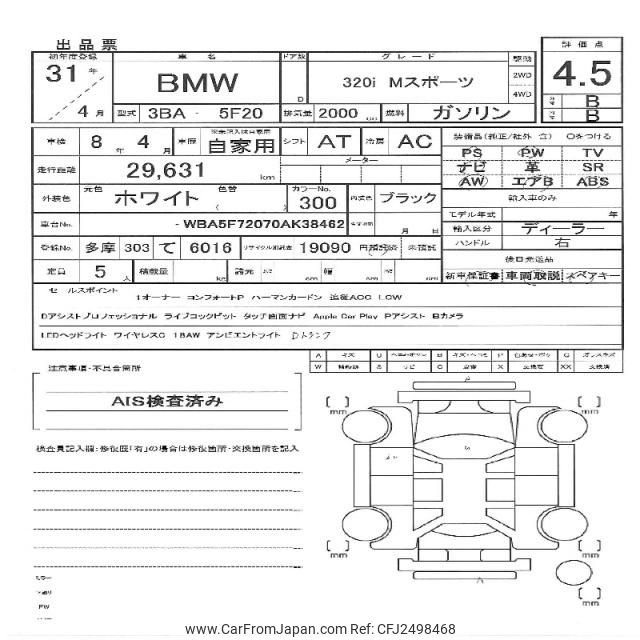 出品票
初年度登録 車名 ドア数 グレード 駆動 評価点
31年 BMW 320i Mスポーツ 2WD 4.5
4月 D 4WD
型式 3BA - 5F20 排気量 2000 燃料 ガソリン B
B
車検 8年 4月 車歴 自家用 シフト AT 冷房 AC 装備品(純正/社外 含) Oをつける
PS PW TV
走行距離 29,631 km メーター ナビ 革 SR
AW エアB ABS
外装色 元色 ホワイト 色替 カラーNo. 300 内装色 ブラック 輸入車のみ
モデル年式 年
車台No. - WBA5F72070AK38462 月 日 輸入区分 ディーラー
登録No. 多摩 303 て 6016 リサイクル預託金 19090 円 預託済 未預託 ハンドル 右
後日発送品
定員 5人 積載量 kg 諸元 長さ cm 幅 cm 高さ cm 新車保証書 車両取説 スペアキー
セールスポイント
1オーナー コンフォートP ハーマンカードン 追従ACC LCW
Dアシストプロフェッショナル ライブコックピット タッチ画面ナビ Apple Car Play Pアシスト Bカメラ
LEDヘッドライト ワイヤレスC 18AW アンビエントライト Dトランク
A キズ U B P G ガラスキズ
W S サビ C X XX
注意事項・不具合箇所
AIS検査済み
検査員記入欄:修復歴「有」の場合は修復箇所・交換箇所を記入
mm
mm
mm
mm
mm
www.CarFromJapan.com Ref: CFJ2498468